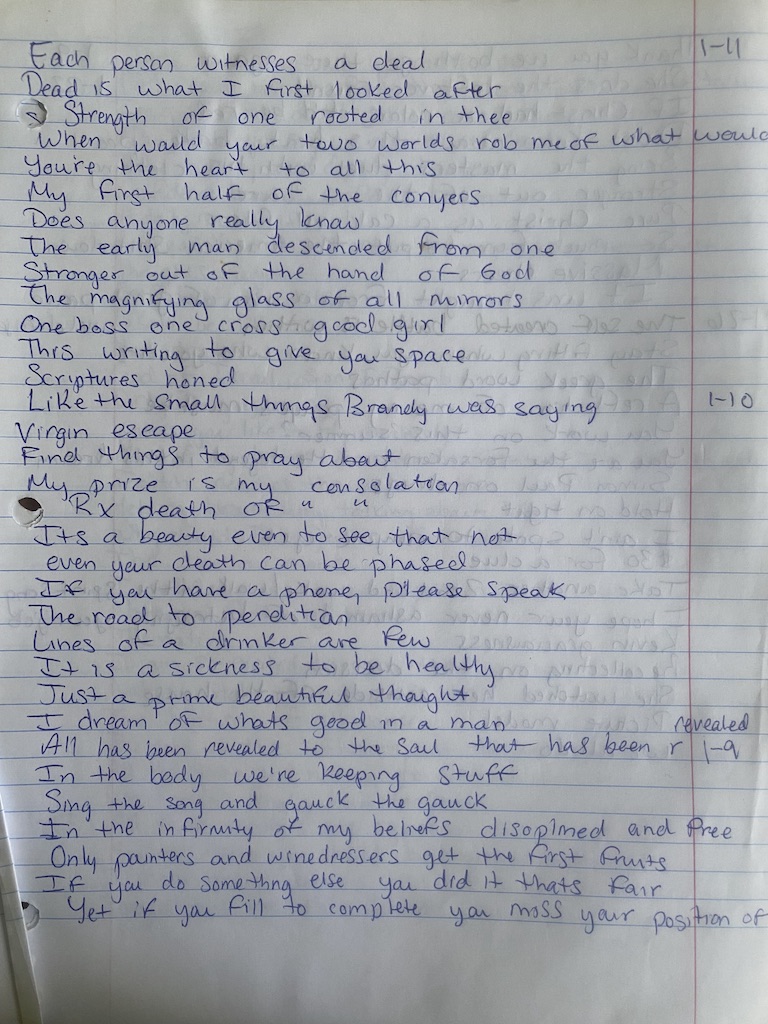 Each person witnesses a deal 1-11
Dead is what I first looked after
Strength of one rooted in thee
When would your two worlds rob me of what would
You're the heart to all this
My first half of the conyers
Does anyone really know
The early man descended from one
Stronger out of the hand of God
The magnifying glass of all mirrors
One boss one cross good girl
This writing to give you space
Scriptures honed
Like the small things Brandy was saying 1-10
Virgin escape
Find things to pray about
My prize is my consolation
Rx death of " "
Its a beauty even to see that not
even your death can be phased
If you have a phone, please speak
The road to perdition
Lines of a drinker are few
It is a sickness to be healthy
Just a prime beautiful thought
I dream of whats good in a man revealed
All has been revealed to the soul that has been r 1-9
In the body we're keeping stuff
Sing the song and gauck the gauck
In the infirmity of my beliefs and free
Only painters and winedressers get the first fruits
If you do something else you did it thats fair
Yet if you fill to complete you moss your position of